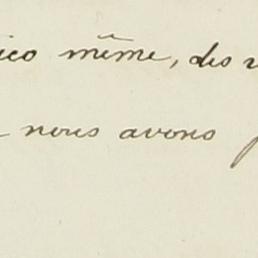 même, des
nous avons